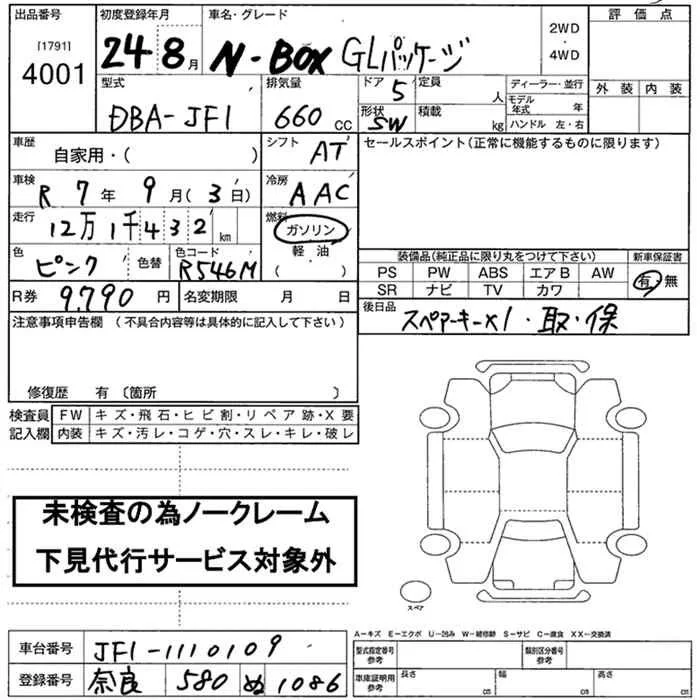 出品番号 初度登録年月 車名・グレード 評価点
[1791] 4001 24年8月 N-BOX GLパッケージ 2WD・4WD
外装 内装
型式 排気量 ドア 5 定員 人 ディーラー・並行
DBA-JF1 660 CC 形状 SW 積載 kg モデル年式 年
ハンドル 左・右
車歴 自家用・( ) シフト AT セールスポイント(正常に機能するものに限ります)
車検 R 7年 9月(3日) 冷房 AAC
走行 12万1千432 km 燃料 ガソリン
軽油
( )
色 ピンク 色替 色コード R546M
装備品(純正品に限り丸をつけて下さい) 新車保証書
PS PW ABS エアB AW 有・無
SR ナビ TV カワ
R券 9,790 円 名変期限 月 日
後日品 スペアーキーx1・取・保
注意事項申告欄 (不具合内容等は具体的に記入して下さい)
修復歴 有 〔箇所 〕
検査員 FW キズ・飛石・ヒビ割・リペア跡・X要
記入欄 内装 キズ・汚レ・コゲ・穴・スレ・キレ・破レ
未検査の為ノークレーム
下見代行サービス対象外
スペア
A－キズ E－エクボ U－凹み W－補修跡 S－サビ C－腐食 XX－交換済
車台番号 JF1-1110109 型式指定番号 参考 類別区分番号 参考
登録番号 奈良 580 ぬ 1086 車庫証明用 参考 長さ cm 幅 cm 高さ cm